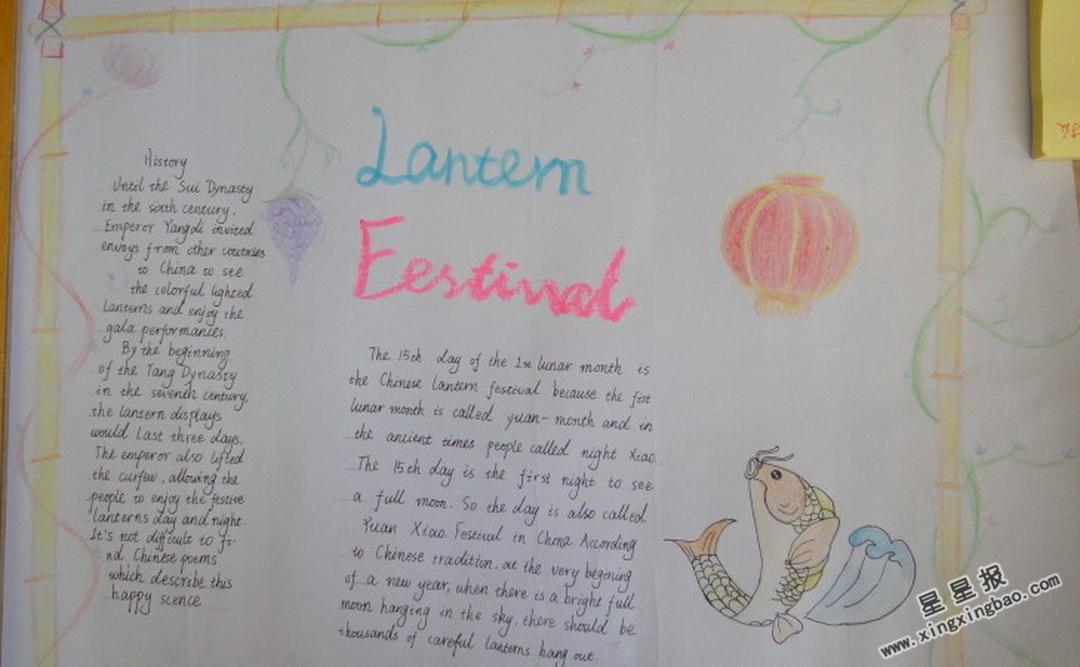 Lantern
Festival
History
Until the Sui Dynasty
in the sixth century.
Emperor Yangdi invited
envoys from other countries
to China to see
the colorful lighted
Lanterns and enjoy the
gala performances.
By the beginning
of the Tang Dynasty
in the seventh century,
the lantern displays
would last three days.
The emperor also lifted
the curfew, allowing the
people to enjoy the festive
lanterns day and night.
It's not difficult to fi-
nd Chinese poems
which describe this
happy scence
The 15th day of the 1st lunar month is
the Chinese lantern festival because the first
lunar month is called yuan-month and in
the ancient times people called night Xiao.
The 15th day is the first night to see
a full moon. So the day is also called
Yuan Xiao Festival in China According
to Chinese tradition, at the very begining
of a new year, when there is a bright full
moon hanging in the sky, there should be
thousands of careful lanterns hang out.
星星报
www.xingxingbao.com